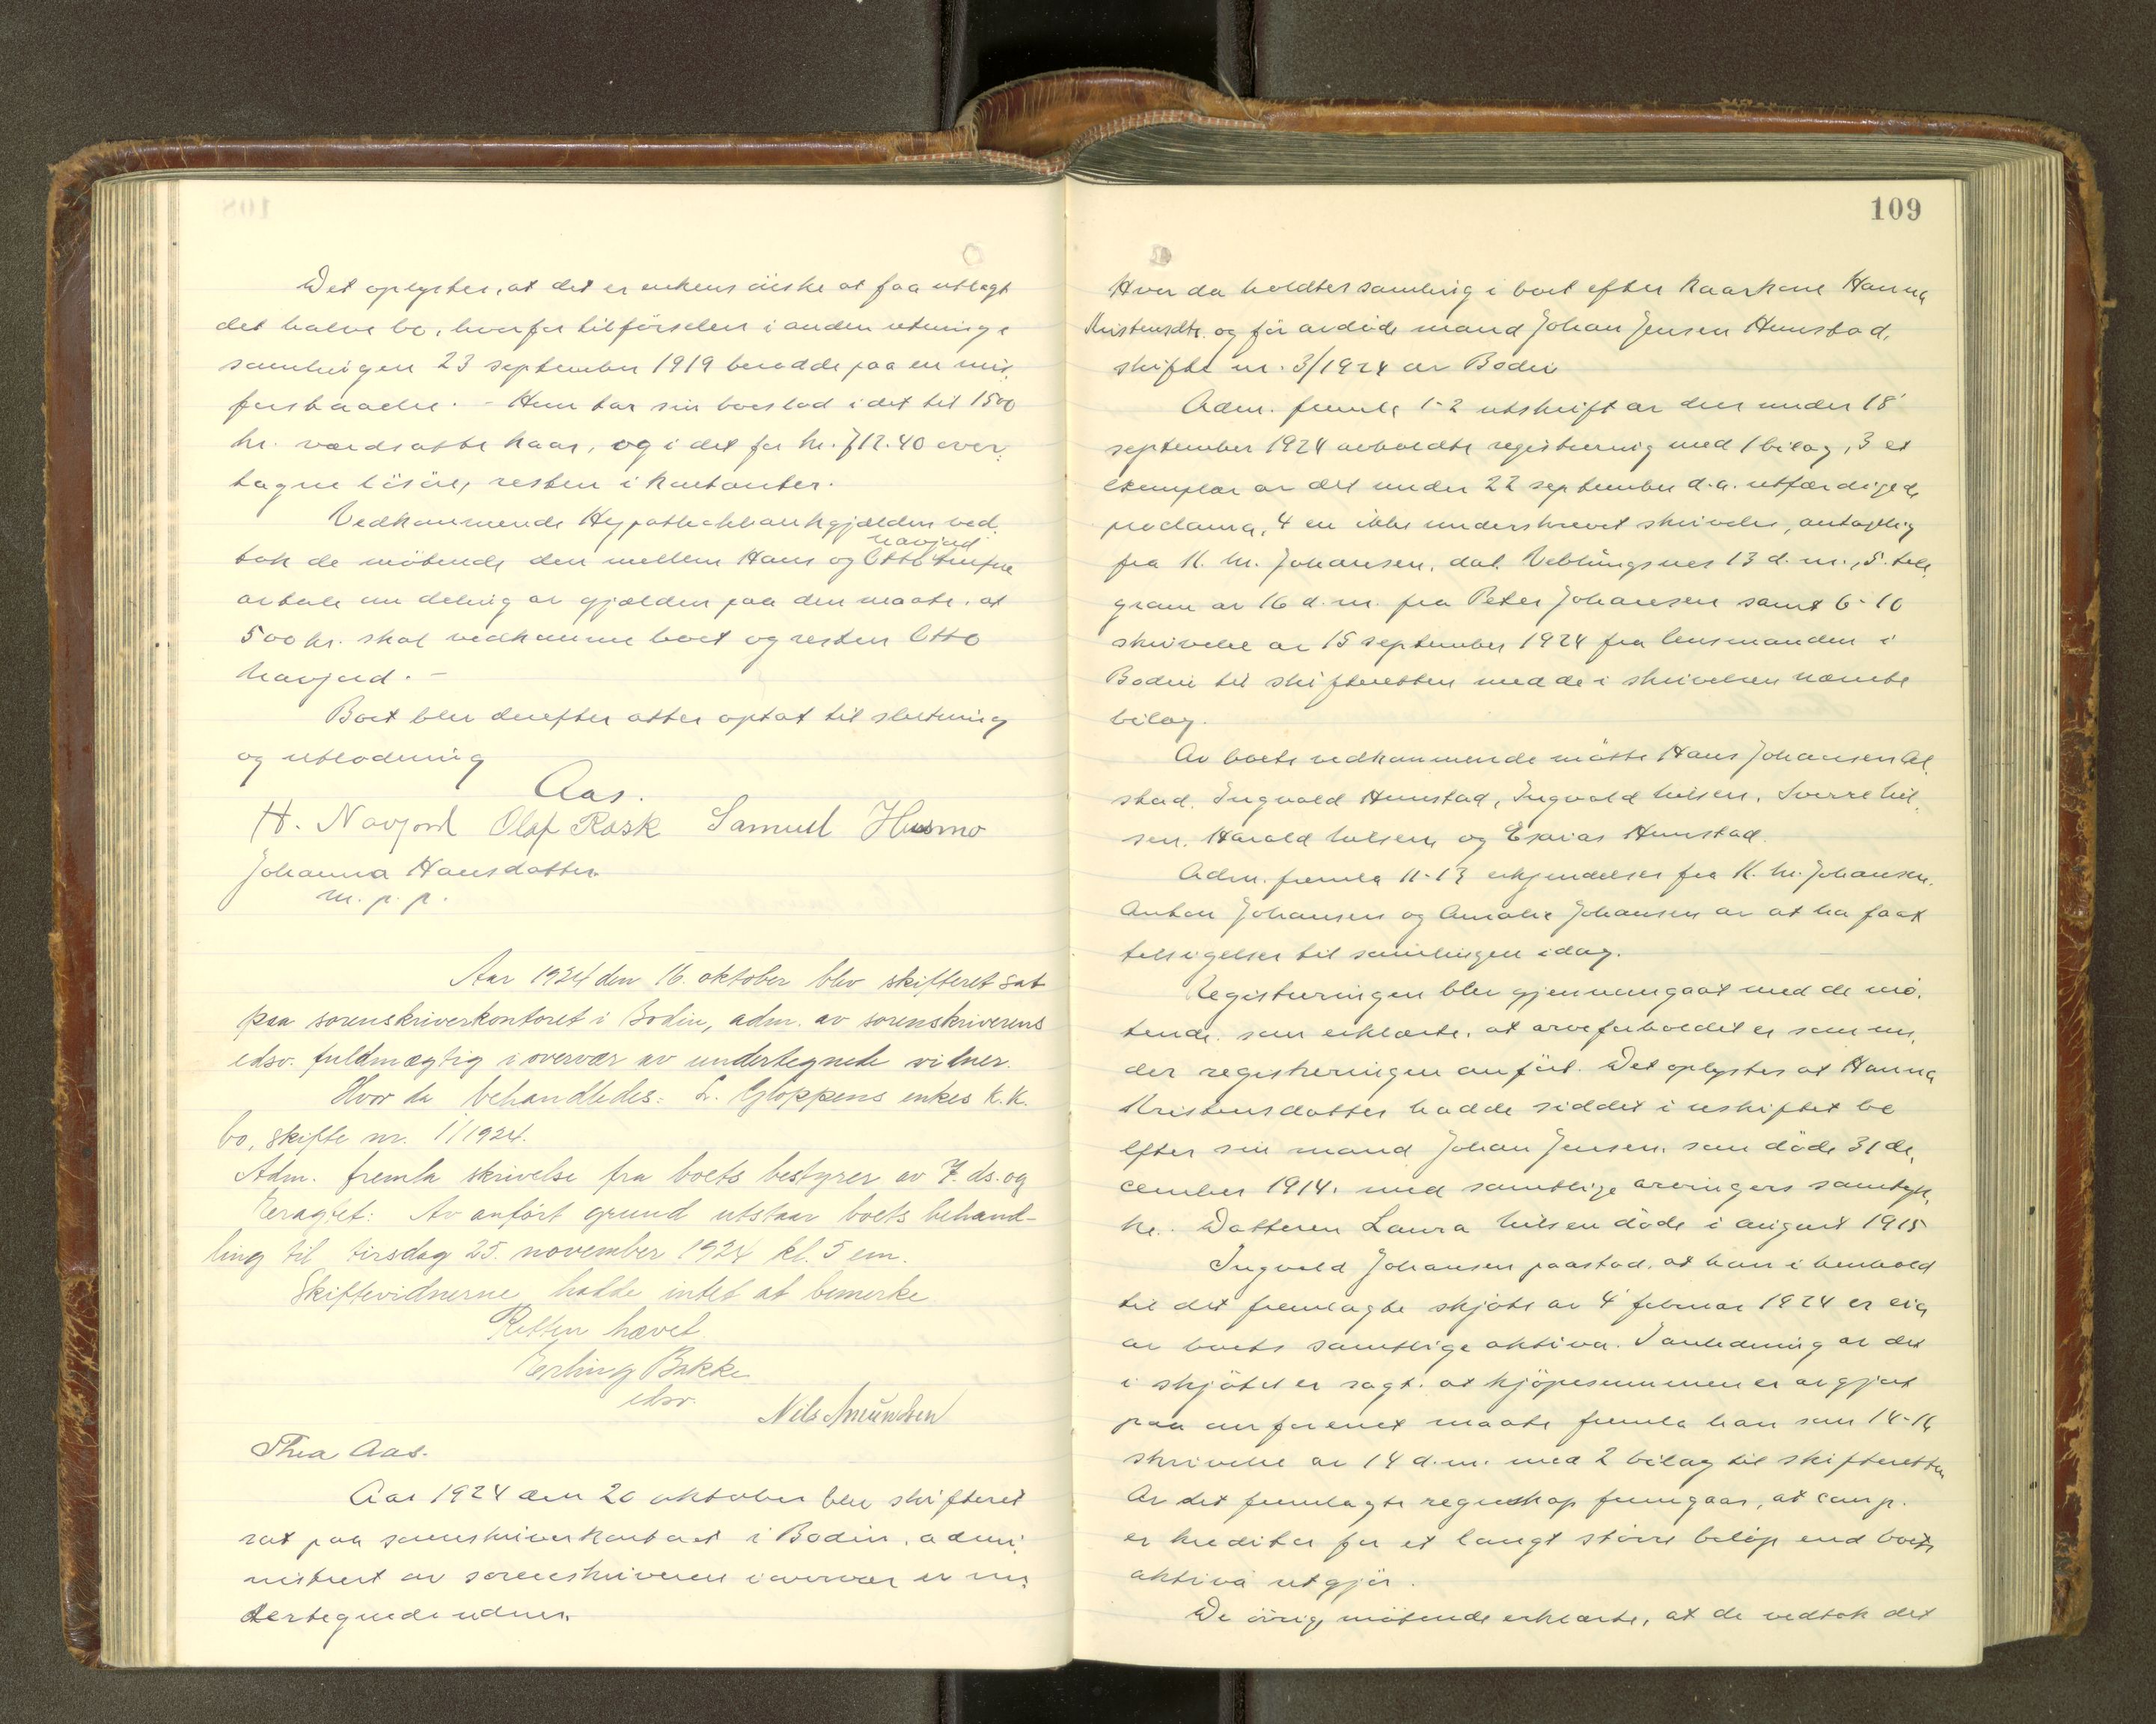 Det oplystes, at det er enkens önske at faa utlagt
det halve bo, hvorfor tilförselen i anden retning i
samlingen 23 september 1919 berodde paa en mis-
forstaaelse. - Hun tar sin boeslod i det til 1500
kr. værdsatte kaar, og i det for kr. 712.40 over-
tagne lösöre, resten i kontanter.
Vedkommende Hypothekbankgjælden ved-
tok de mötende den mellem Hans og Otto Navjord
avtale om deling av gjælden paa den maate, at
500 kr. skal vedkomme boet og resten Otto
Navjord. -
Boet blev derefter atter optat til slutning
og utlodning
Aas.
H. Navjord Olaf Rask Samuel Husmo
Johanna Hansdatter
m. p. p.
Aar 1924 den 16. oktober blev skifteret sat
paa sorenskriverkontoret i Bodin, adm. av sorenskriverens
edsv. fuldmægtig i overvær av undertegnede vidner.
Hvor da behandledes: L. Gloppens enkes k.k.
bo, skifte nr. 1/1924.
Adm. fremla skrivelse fra boets bestyrer av 7. ds. og
Eragtet: Av anfört grund utstaar boets behand-
ling til tirsdag 25. november 1924 kl. 5 em.
Skiftevidnerne hadde intet at bemerke
Retten hævet
Erling Bakke
edsv.
Nils Amundsen
Thea Aas.
Aar 1924 den 20 oktober blev skifteret
sat paa sorenskriverkontoret i Bodin, admi-
nistrert av sorenskriveren i overvær av un-
dertegnede vidner.
109
Hvor da holdtes samling i boet efter kaarkone Hanna
Kristensdtr. og för avdöde mand Johan Jensen Hunstad,
skifte nr. 3/1924 av Bodin
Adm. fremla 1-2 utskrift av den under 18
september 1924 avholdte registrering med 1 bilag, 3 et
eksemplar av det under 22 september d.a. utfærdigede
proclama, 4 en ikke underskrevet skrivelse, antagelig
fra K. M. Johansen, dat. Veblungsnes 13 d.m., 5. tele-
gram av 16 d.m. fra Peter Johansen samt 6-10
skrivelse av 15 september 1924 fra lensmanden i
Bodin til skifteretten med de i skrivelsen nævnte
bilag.
Av boets vedkommende mötte Hans Johansen Al-
stad, Ingvald Hunstad, Ingvald Nilsen, Sverre Nil-
sen, Harald Nilsen og Esaias Hunstad.
Adm. fremla 11-13 erkjendelser fra K. M. Johansen,
Anton Johansen og Amalie Johansen av at ha faat
tilsigelser til samlingen idag.
Registreringen blev gjennemgaat med de mö-
tende, som erklærte, at arveforholdet er som un-
der registreringen anfört. Det oplystes at Hanna
Kristensdatter hadde siddet i uskiftet bo
efter sin mand Johan Jensen, som döde 31 de-
cember 1914, med samtlige arvingers samtyk-
ke. Datteren Laura Nilsen döde i august 1915
Ingvald Johansen paastod, at han i henhold
til det fremlagte skjöte av 4 februar 1924 er eier
av boets samtlige aktiva. I anledning av det
i skjötet er sagt, at kjöpesummen er avgjort
paa omforenet maate fremla han som 14-16
skrivelse av 14 d.m. med 2 bilag til skifteretten
Av det fremlagte regnskap fremgaar, at comp.
er kreditor for et langt större belöp end boets
aktiva utgjör.
De övrige mötende erklærte, at de vedtok det